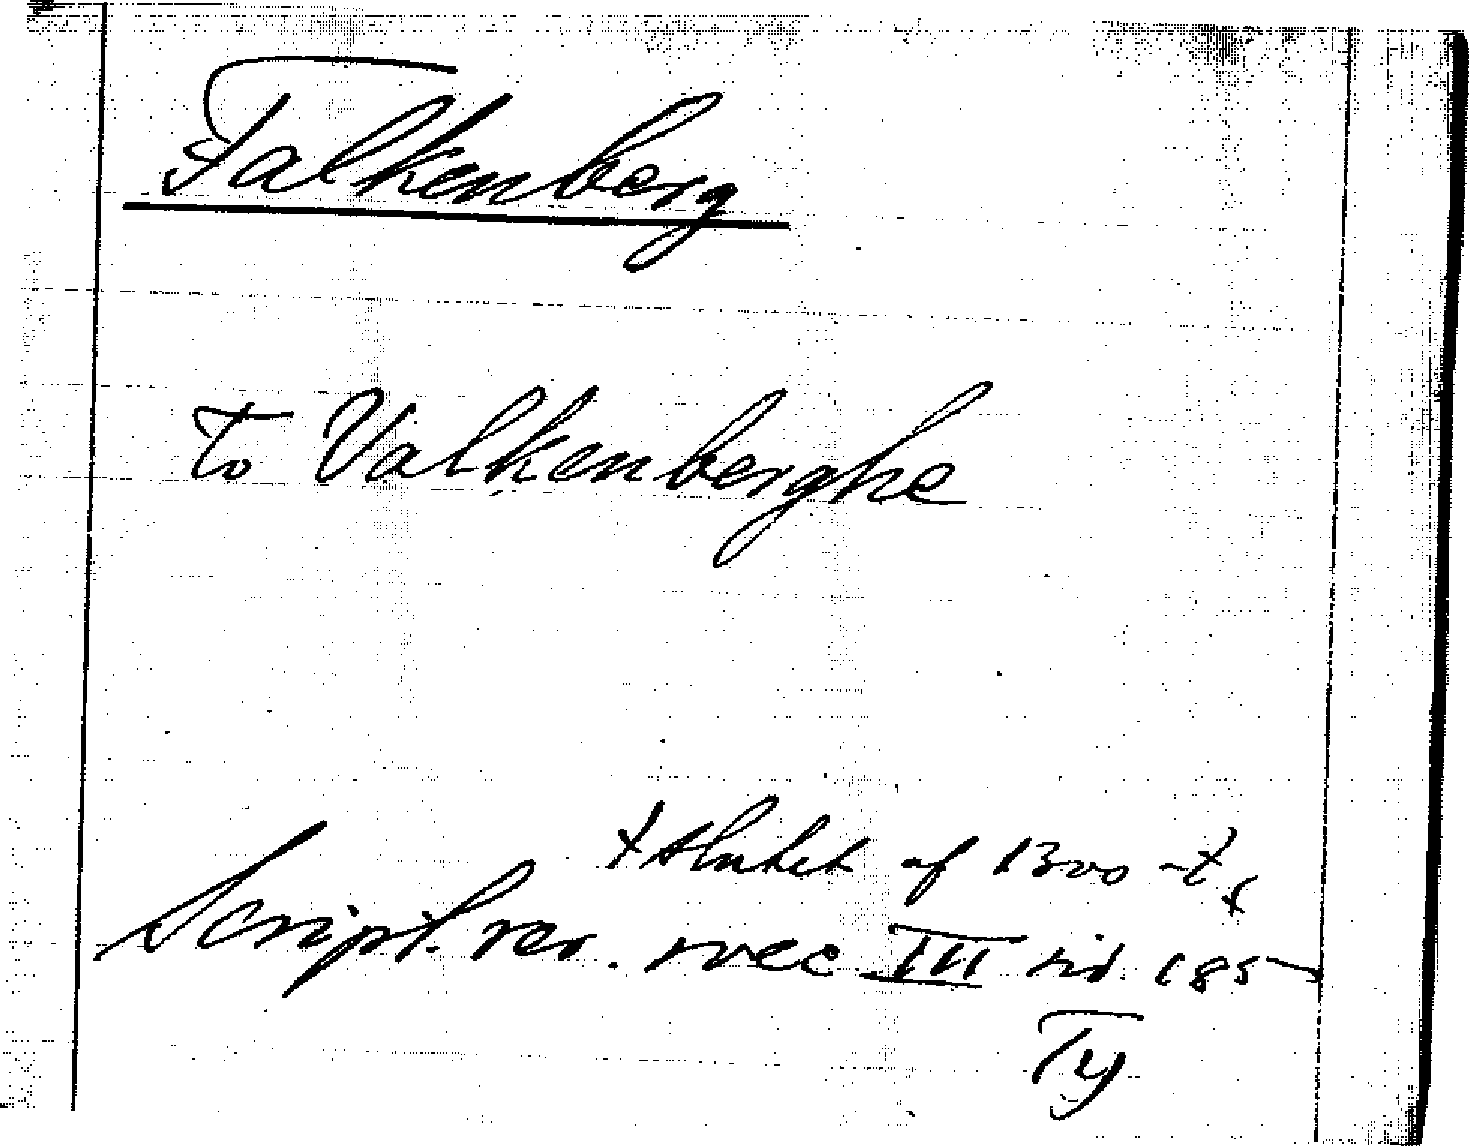 Falkenberg
to Valkenberghe
+ slutet af 1300-t.+
Script. rer. svec III sid. 185
Ty